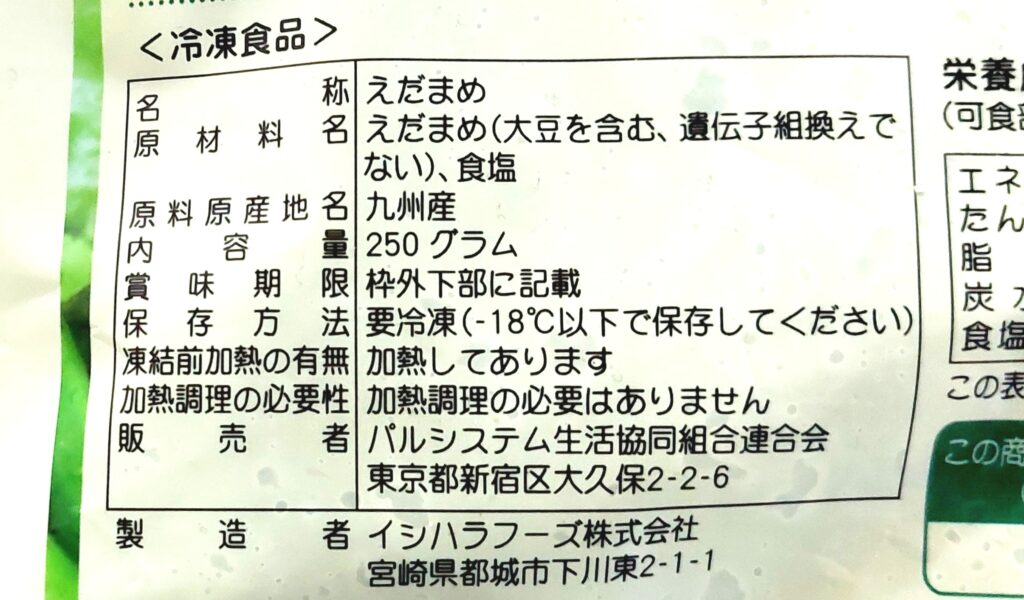 <冷凍食品>
名称 えだまめ
原材料名 えだまめ(大豆を含む、遺伝子組換えで
ない)、食塩
原料原産地名 九州産
内容量 250グラム
賞味期限 枠外下部に記載
保存方法 要冷凍(-18℃以下で保存してください)
凍結前加熱の有無 加熱してあります
加熱調理の必要性 加熱調理の必要はありません
販売者 パルシステム生活協同組合連合会
東京都新宿区大久保2-2-6
製造者 イシハラフーズ株式会社
宮崎県都城市下川東2-1-1
栄養
(可食
エネ
たん
脂
炭水
食塩
この表
この商